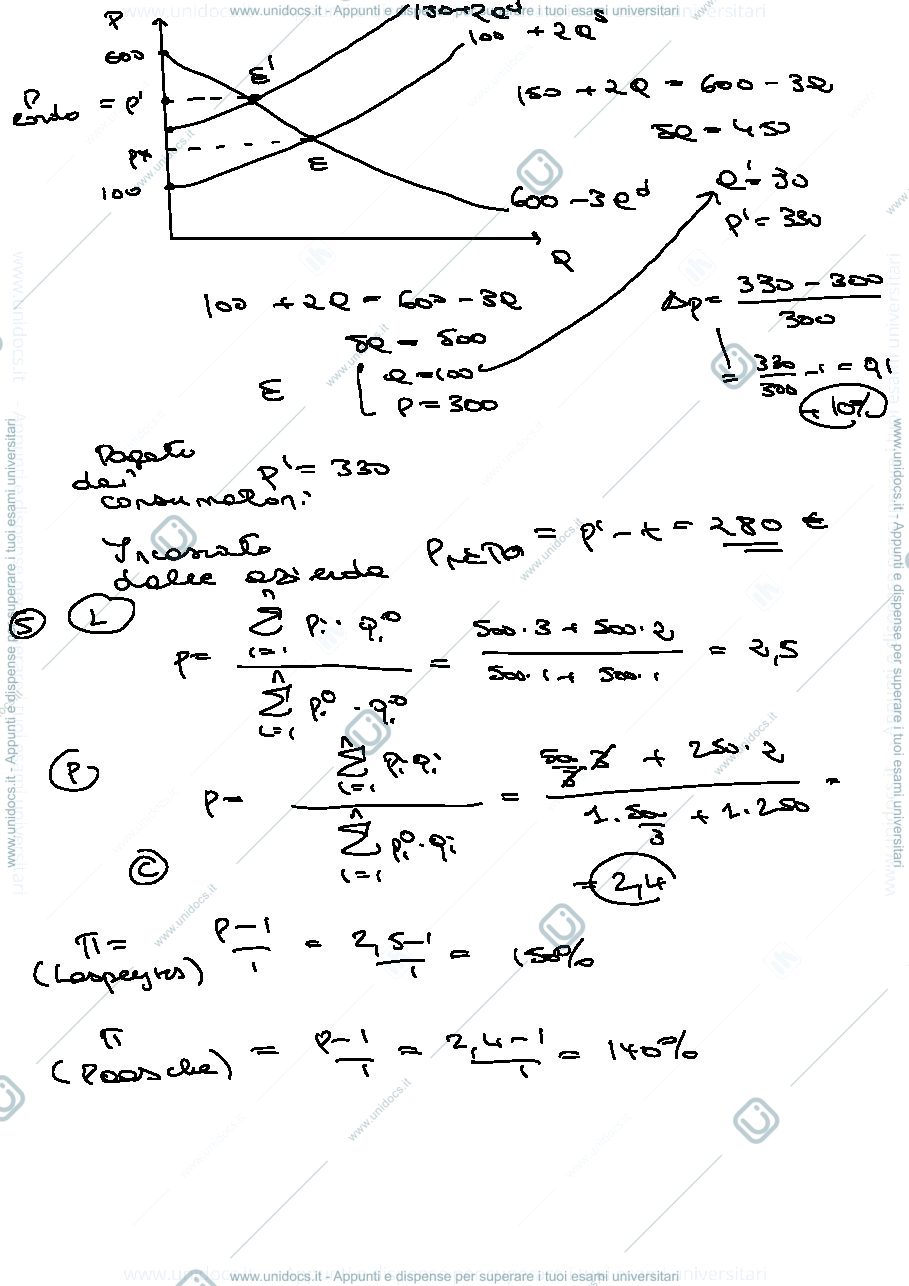 www.unidocs.it - Appunti e dispense per superare i tuoi esami universitari
P
150 + 2Q^s
100 + 2Q^s
600
E'
P lordo = P'
P*
E
100
600 - 3Q^d
Q
150 + 2Q = 600 - 3Q
5Q = 450
Q' = 30
P' = 330
100 + 2Q = 600 - 3Q
5Q = 500
E
Q = 100
P = 300
Δp = (330 - 300) / 300
= 330/300 - 1 = 0,1
→ 10%
Pagato dai consumatori P' = 330
Incassato dalle aziende P NETTO = P' - t = 280 €
5 L
P = Σ_{i=1}^{n} P_i · q_i^0 / Σ_{i=1}^{n} P_i^0 · q_i^0 = (500·3 + 500·2) / (500·1 + 500·1) = 2,5
P
P = Σ_{i=1}^{n} P_i q_i / Σ_{i=1}^{n} P_i^0 · q_i = (500/3 · 3 + 250·2) / (1·500/3 + 1·250) =
= 2,4
C
π (Laspeyres) = (P-1)/1 = (2,5-1)/1 = 150%
π (Paasche) = (P-1)/1 = (2,4-1)/1 = 140%
www.unidocs.it - Appunti e dispense per superare i tuoi esami universitari